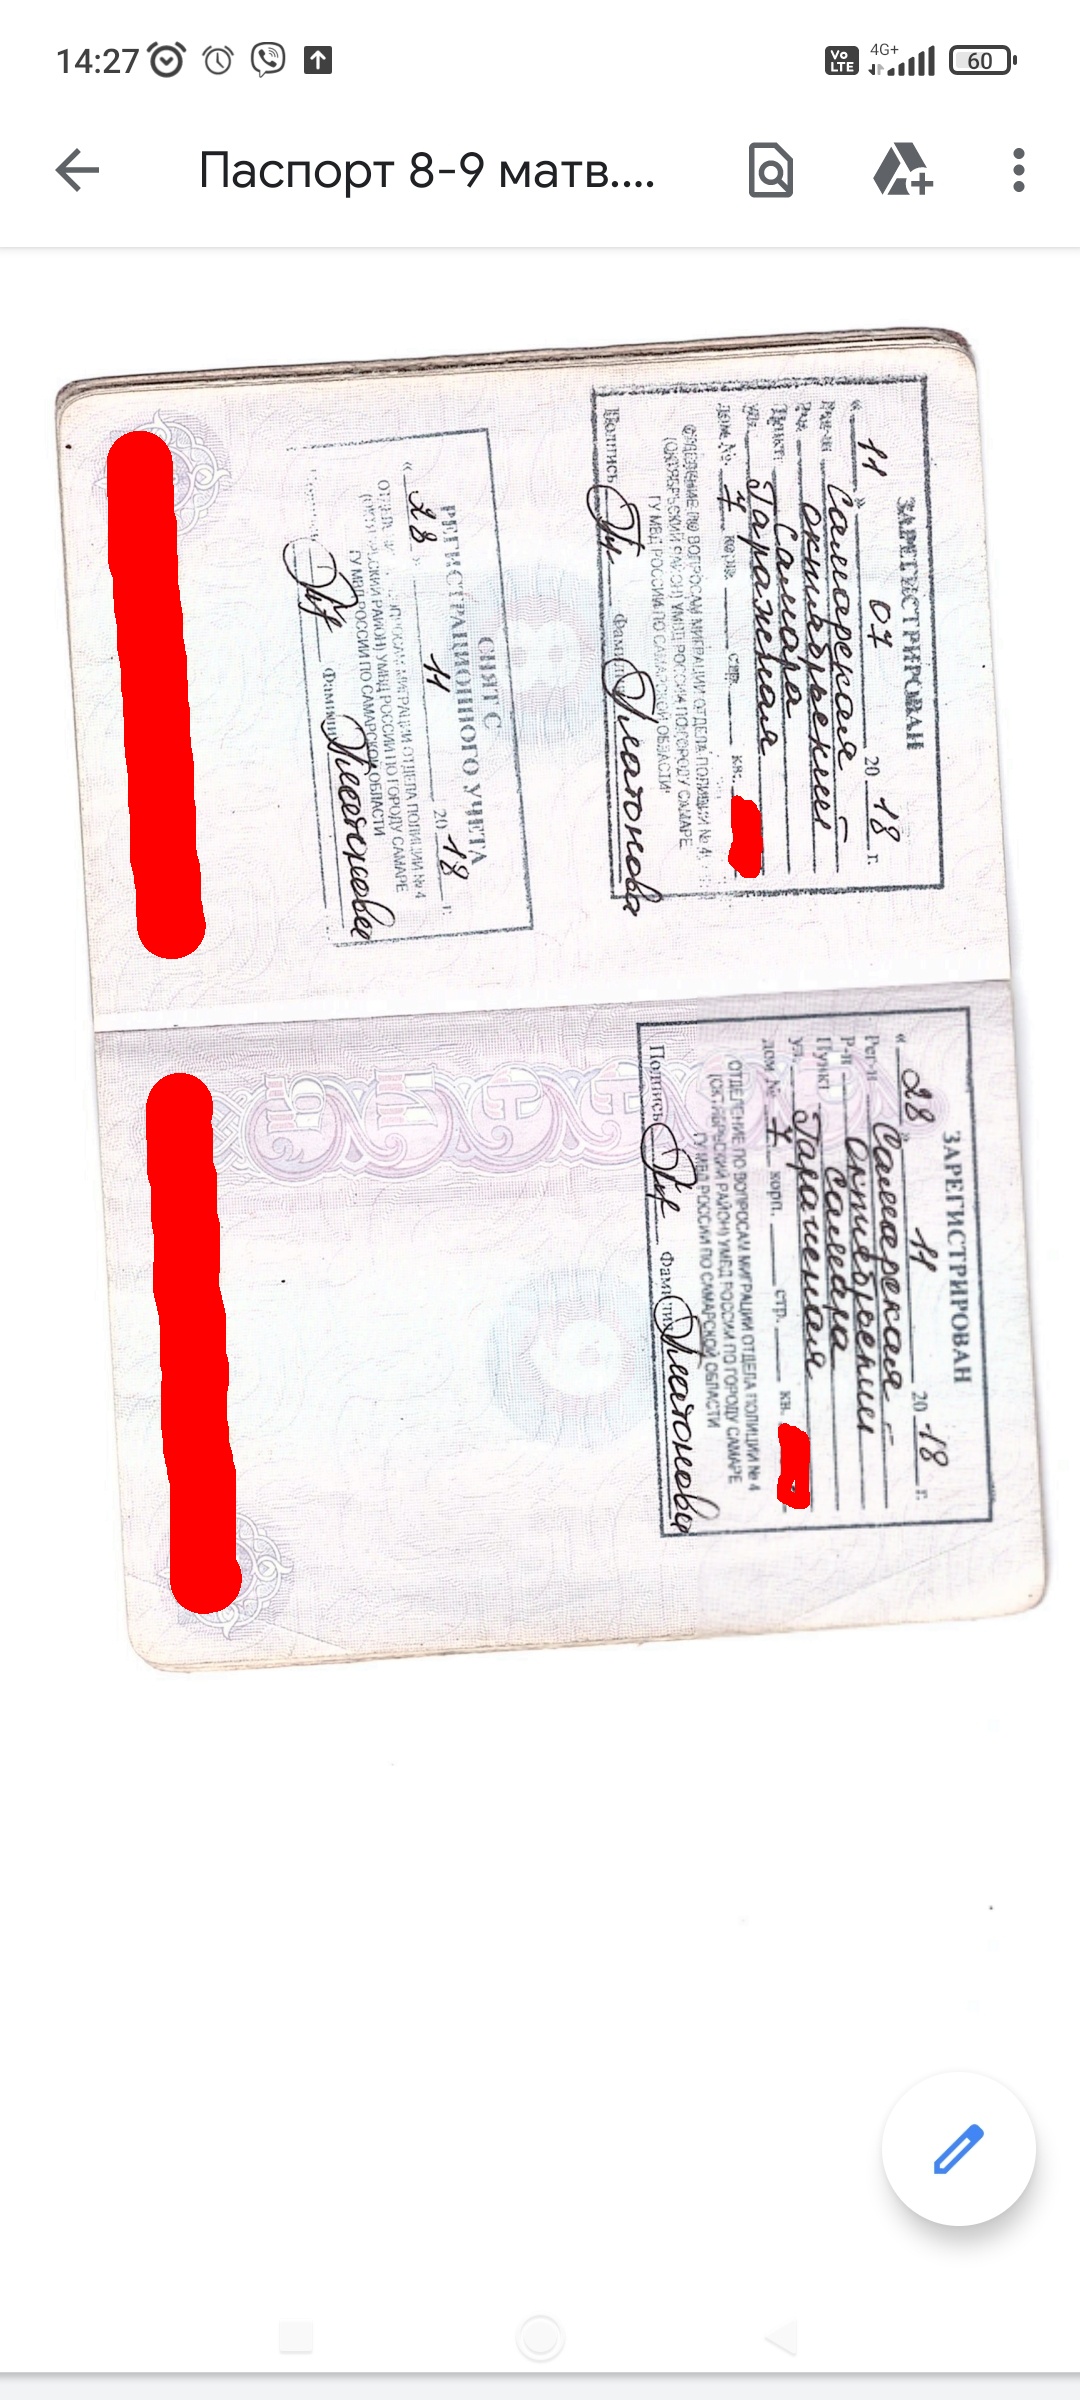 14:27
Vo LTE 4G+ 60
Паспорт 8-9 матв....
ЗАРЕГИСТРИРОВАН
« 11 » 07 20 18 г.
Рег-н Самарская
Р-н Октябрьский
Пункт Самара
ул. Гаражная
дом № 7 корп. стр. кв.
ОТДЕЛЕНИЕ ПО ВОПРОСАМ МИГРАЦИИ ОТДЕЛА ПОЛИЦИИ № 4
(ОКТЯБРЬСКИЙ РАЙОН) УМВД РОССИИ ПО ГОРОДУ САМАРЕ
ГУ МВД РОССИИ ПО САМАРСКОЙ ОБЛАСТИ
Подпись Фамилия Платонова
СНЯТ С
РЕГИСТРАЦИОННОГО УЧЕТА
« 28 » 11 20 18 г.
ОТДЕЛ ВОПРОСАМ МИГРАЦИИ ОТДЕЛА ПОЛИЦИИ № 4
РАЙОН) УМВД РОССИИ ПО ГОРОДУ САМАРЕ
ГУ МВД РОССИИ ПО САМАРСКОЙ ОБЛАСТИ
Фамилия Платонова
8
ЗАРЕГИСТРИРОВАН
« 28 » 11 20 18 г.
Рег-н Самарская
Р-н Октябрьский
Пункт Самара
ул. Гаражная
дом № 7 корп. стр. кв.
ОТДЕЛЕНИЕ ПО ВОПРОСАМ МИГРАЦИИ ОТДЕЛА ПОЛИЦИИ № 4
(ОКТЯБРЬСКИЙ РАЙОН) УМВД РОССИИ ПО ГОРОДУ САМАРЕ
ГУ МВД РОССИИ ПО САМАРСКОЙ ОБЛАСТИ
Подпись Фамилия Платонова
9